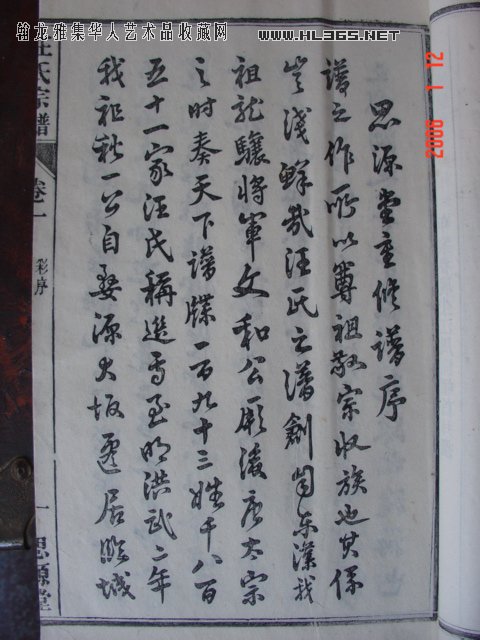 翰龙雅集华人艺术品收藏网
www.HL365.net
21 1 2006
思源堂重修譜序
譜之作所以尊祖敬宗收族也其係
豈淺鮮哉汪氏之譜創自东漢我
祖龍驤將軍文和公厥後唐太宗
之时奏天下譜牒一百九十三姓千八百
五十一家汪氏稱進焉至明洪武二年
我祖秋一公自婺源大坂遷居臨城
汪氏宗譜
卷一
序
一
思源堂